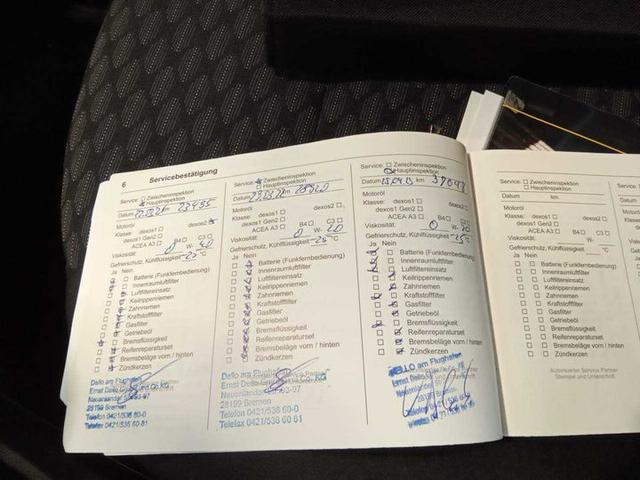 6 Servicebestätigung
Service: Zwischeninspektion
Hauptinspektion
Datum km 23435
Motoröl
Klasse: dexos1 dexos2
dexos1 Gen2
ACEA A3 B4 C3
Viskosität: 0 W- 40
Gefrierschutz, Kühlflüssigkeit -25 °C
Ja Nein
Batterie (Funkfernbedienung)
Innenraumluftfilter
Luftfiltereinsatz
Keilrippenriemen
Zahnriemen
Kraftstofffilter
Gasfilter
Getriebeöl
Bremsflüssigkeit
Reifenreparaturset
Bremsbeläge vorn / hinten
Zündkerzen
Dello am Flughafen
Ernst Dello GmbH und Co. KG
28199 Bremen
Telefon 0421/536 60-0
Telefax 0421/536 60 81
Service: Zwischeninspektion
Hauptinspektion
Datum km
Motoröl
Klasse: dexos1 dexos2
dexos1 Gen2
ACEA A3 B4 C3
Viskosität: 0 W- 20
Gefrierschutz, Kühlflüssigkeit -25 °C
Ja Nein
Batterie (Funkfernbedienung)
Innenraumluftfilter
Luftfiltereinsatz
Keilrippenriemen
Zahnriemen
Kraftstofffilter
Gasfilter
Getriebeöl
Bremsflüssigkeit
Reifenreparaturset
Bremsbeläge vorn / hinten
Zündkerzen
Dello am Flughafen
Ernst Dello
28199 Bremen
Telefon 0421/536 60-0
Telefax 0421/536 60 81
Service: Zwischeninspektion
Hauptinspektion
Datum km
Motoröl
Klasse: dexos1 dexos2
dexos1 Gen2
ACEA A3 B4 C3
Viskosität: 0 W- 20
Gefrierschutz, Kühlflüssigkeit -25 °C
Ja Nein
Batterie (Funkfernbedienung)
Innenraumluftfilter
Luftfiltereinsatz
Keilrippenriemen
Zahnriemen
Kraftstofffilter
Gasfilter
Getriebeöl
Bremsflüssigkeit
Reifenreparaturset
Bremsbeläge vorn / hinten
Zündkerzen
DELLO am Flughafen
Ernst Dello
28199 Bremen
Service: Zwischeninspektion
Hauptinspektion
Datum km
Motoröl
Klasse: dexos1 dexos2
dexos1 Gen2
ACEA A3 B4 C3
Viskosität: W-
Gefrierschutz, Kühlflüssigkeit °C
Ja Nein
Batterie (Funkfernbedienung)
Innenraumluftfilter
Luftfiltereinsatz
Keilrippenriemen
Zahnriemen
Kraftstofffilter
Gasfilter
Getriebeöl
Bremsflüssigkeit
Reifenreparaturset
Bremsbeläge vorn / hinten
Zündkerzen
Autorisierter Service Partner
Stempel und Unterschrift